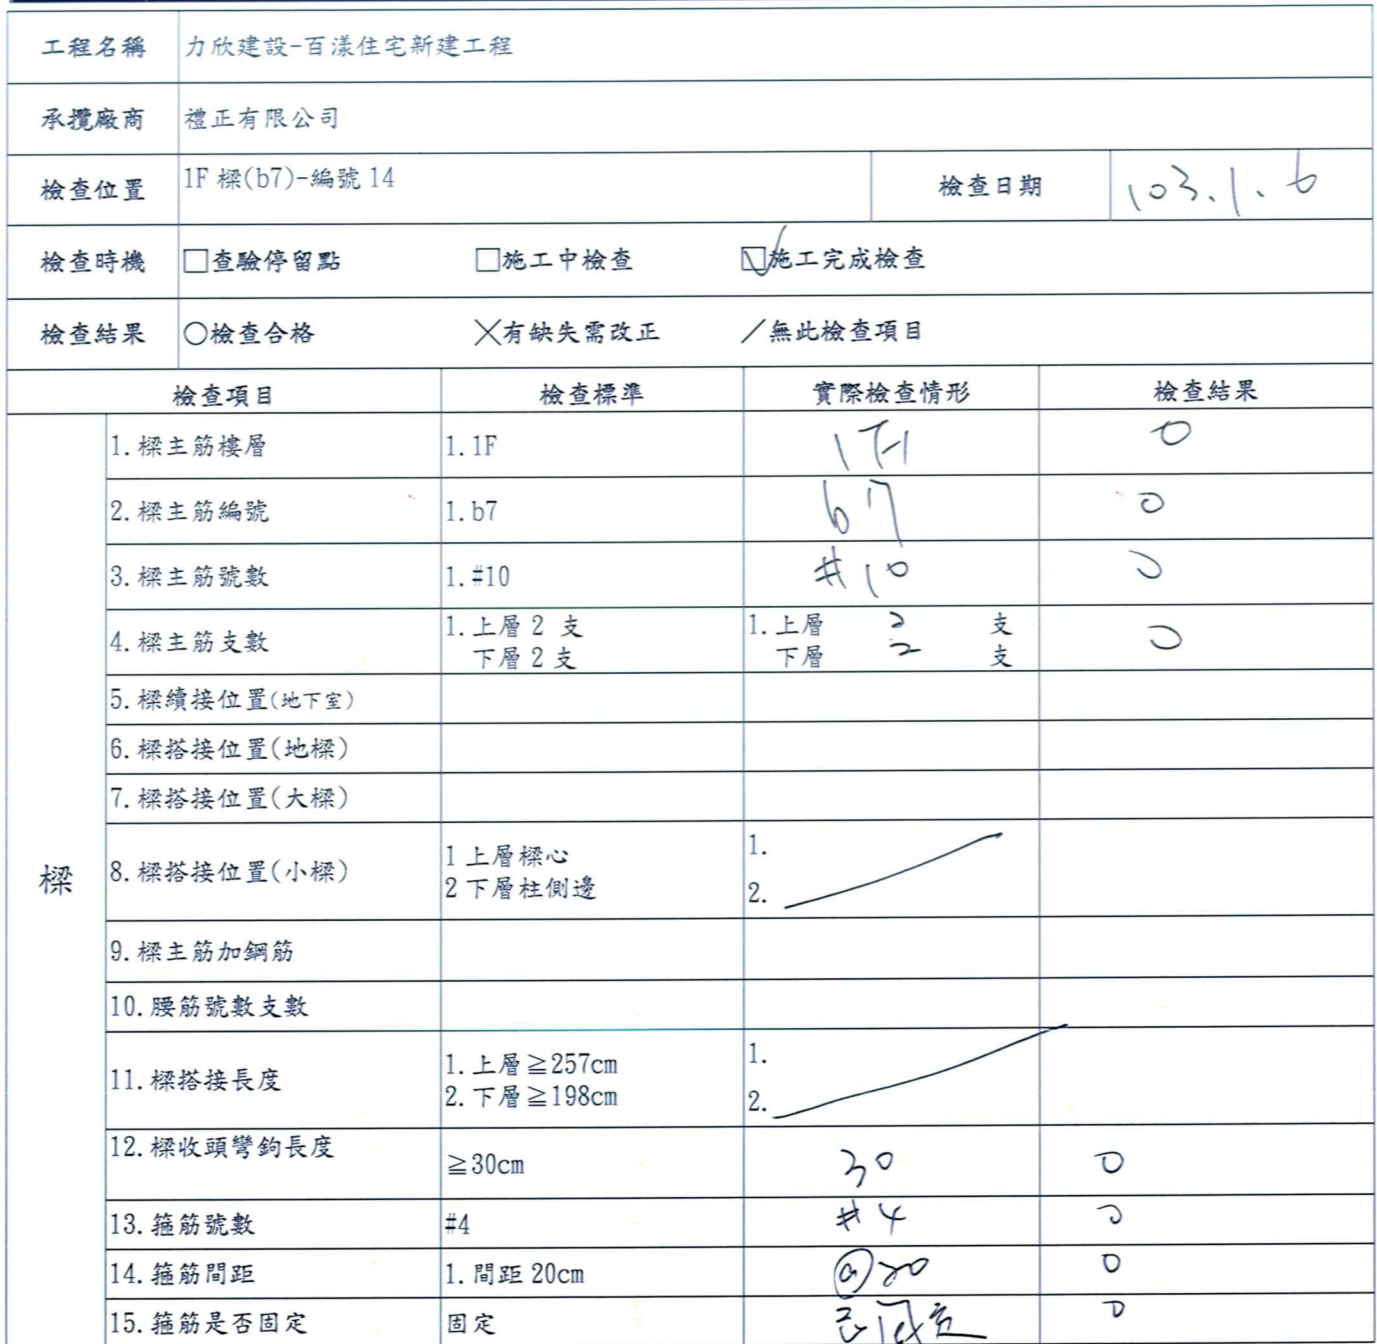 工程名稱 力欣建設-百漾住宅新建工程
承攬廠商 禮正有限公司
檢查位置 1F 樑(b7)-編號 14 檢查日期 103.1.6
檢查時機 □查驗停留點 □施工中檢查 ☑施工完成檢查
檢查結果 ○檢查合格 ╳有缺失需改正 ╱無此檢查項目
檢查項目 檢查標準 實際檢查情形 檢查結果
樑
1.樑主筋樓層 1.1F 1F O
2.樑主筋編號 1.b7 b7 O
3.樑主筋號數 1.#10 #10 O
4.樑主筋支數 1.上層 2 支 1.上層 2 支 O
下層 2 支 下層 2 支
5.樑續接位置(地下室)
6.樑搭接位置(地樑)
7.樑搭接位置(大樑)
8.樑搭接位置(小樑) 1 上層樑心 1.
2 下層柱側邊 2.
9.樑主筋加鋼筋
10.腰筋號數支數
11.樑搭接長度 1.上層≧257cm 1.
2.下層≧198cm 2.
12.樑收頭彎鉤長度 ≧30cm 30 O
13.箍筋號數 #4 #4 O
14.箍筋間距 1.間距 20cm @20 O
15.箍筋是否固定 固定 已固定 O